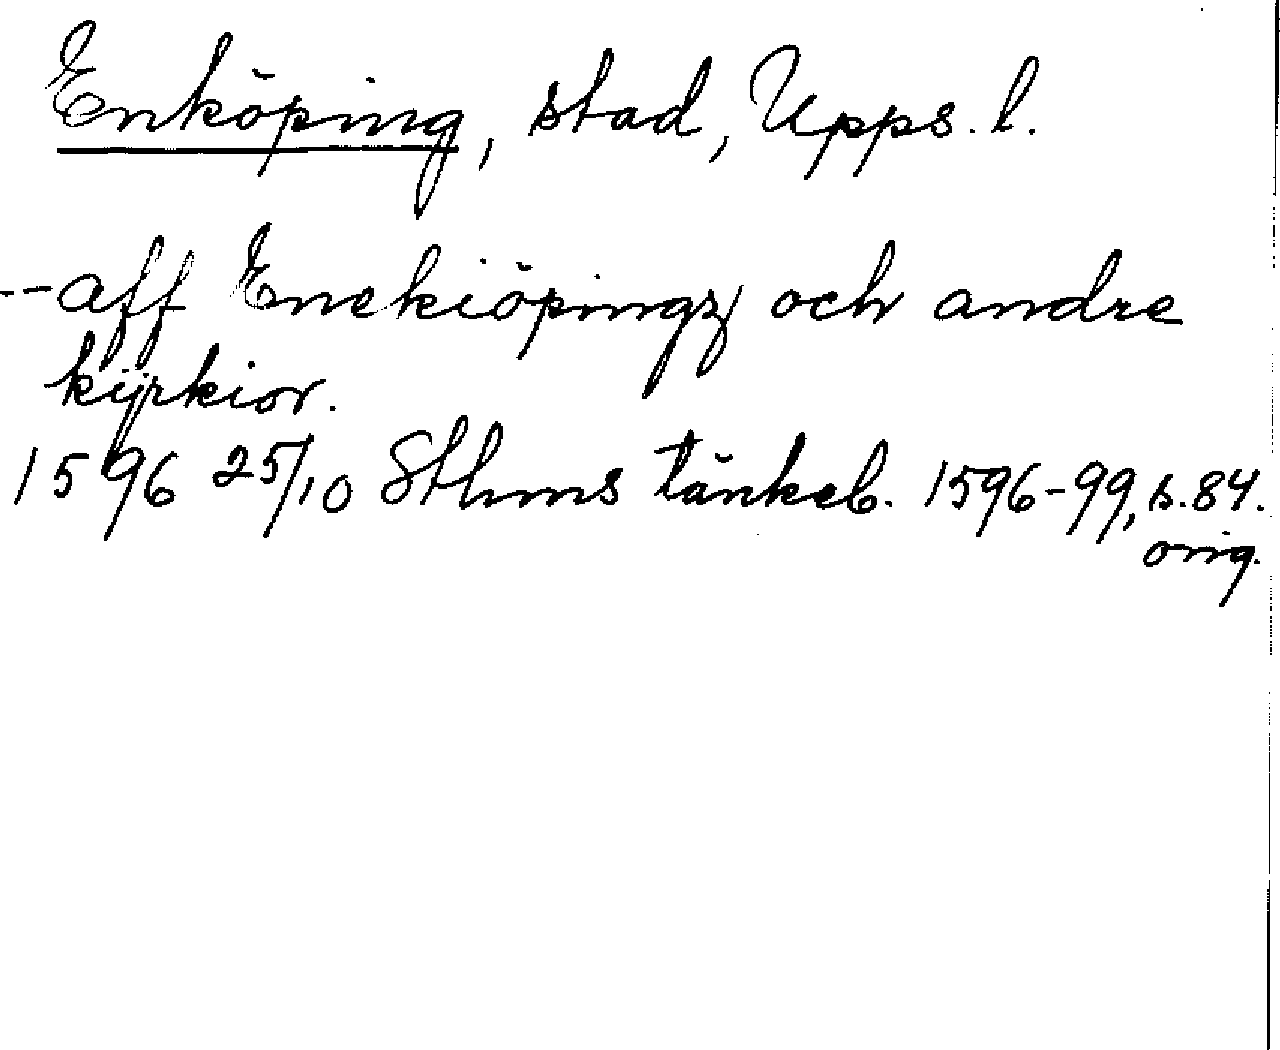 Enköping, stad, Upps. l.
--aff Enekiöpingz och andre
kyrkior.
1596 25/10 Sthms tänkeb. 1596-99, s. 84.
orig.